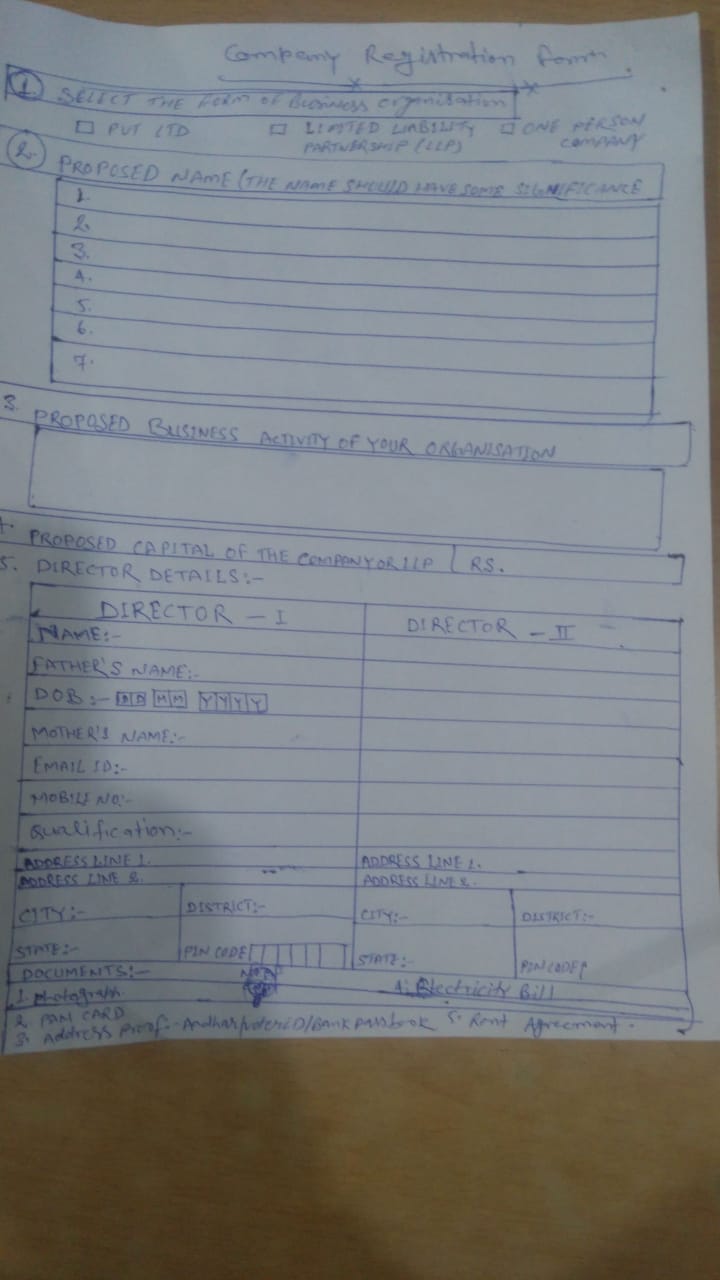 Company Registration Form
1 SELECT THE FORM OF Business organisation
PVT LTD
LIMITED LIABILITY PARTNERSHIP (LLP)
ONE PERSON COMPANY
2. PROPOSED NAME (THE NAME SHOULD HAVE SOME SIGNIFICANCE
1.
2.
3.
4.
5.
6.
7.
3. PROPOSED BUSINESS ACTIVITY OF YOUR ORGANISATION
4. PROPOSED CAPITAL OF THE COMPANY OR LLP RS.
5. DIRECTOR DETAILS:-
DIRECTOR - I DIRECTOR - II
NAME:-
FATHER'S NAME:-
DOB:- DD MM YYYY
MOTHER'S NAME:-
EMAIL ID:-
MOBILE NO:-
Qualification:-
ADDRESS LINE 1. ADDRESS LINE 1.
ADDRESS LINE 2. ADDRESS LINE 2.
CITY:- DISTRICT:- CITY:- DISTRICT:-
STATE:- PIN CODE STATE:- PIN CODE
DOCUMENTS:-
1. photograph 4. Electricity Bill
2. PAN CARD
3. Address Proof:- Aadhar/voter ID/Bank passbook 5. Rent Agreement.